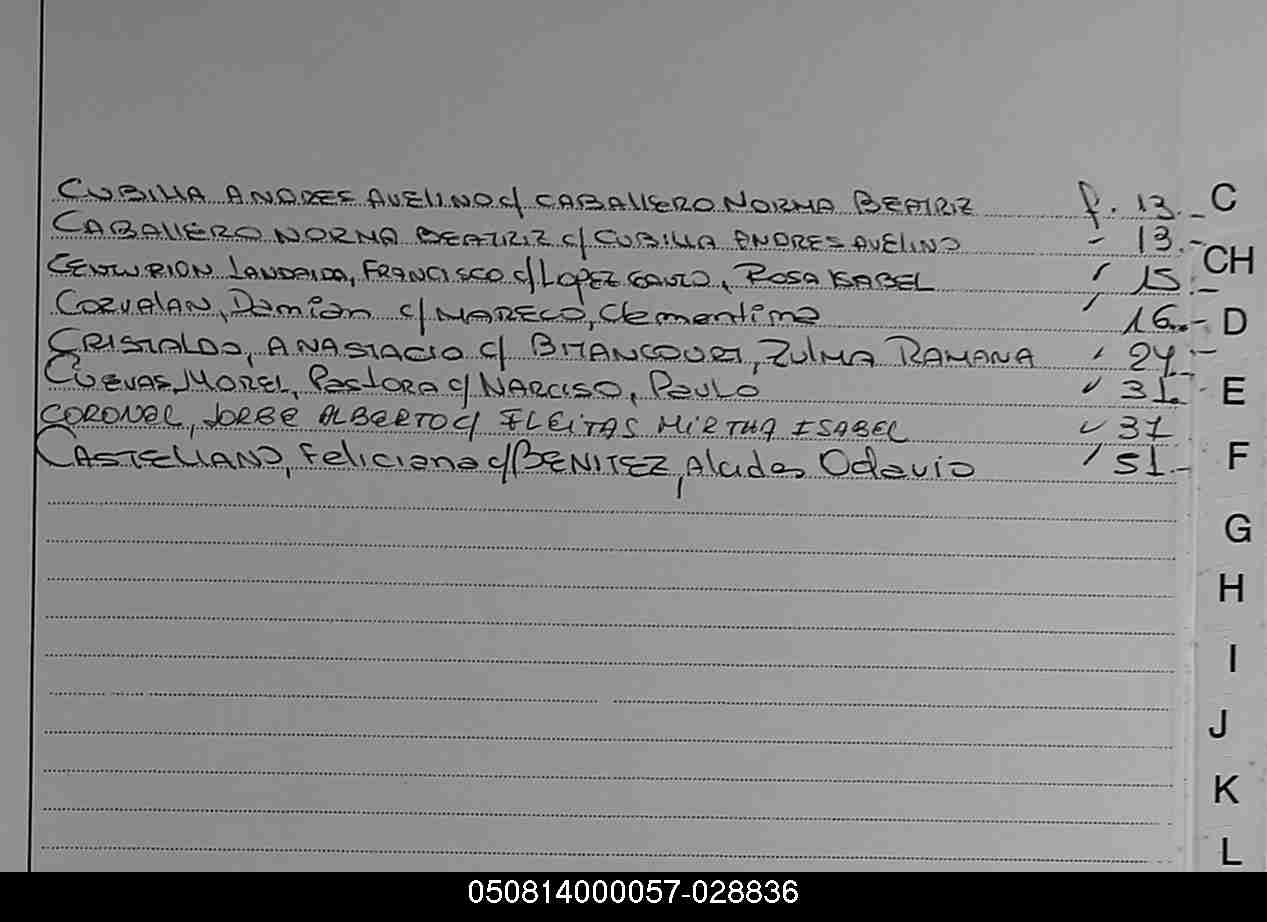 CUBILLA ANDRES AVELINO c/ CABALLERO NORMA BEATRIZ f. 13.-
CABALLERO NORMA BEATRIZ c/ CUBILLA ANDRES AVELINO - 13.-
CENTURION LANDAIDA, FRANCISCO c/ LOPEZ GANTO, ROSA ISABEL ' 15.-
CORVALAN, Damian c/ MARECO, Clementina ' 16.-
CRISTALDO, ANASTACIO c/ BITANCOURT, ZULMA RAMANA ' 24.-
CUEVAS MOREL, Pastora c/ NARCISO, Paulo " 31.-
CORONEL, JORGE ALBERTO c/ FLEITAS MIRTHA ISABEL " 37
CASTELLANO, Feliciana c/ BENITEZ, Alcides Odavio ' 51.-
C
CH
D
E
F
G
H
I
J
K
L
050814000057-028836